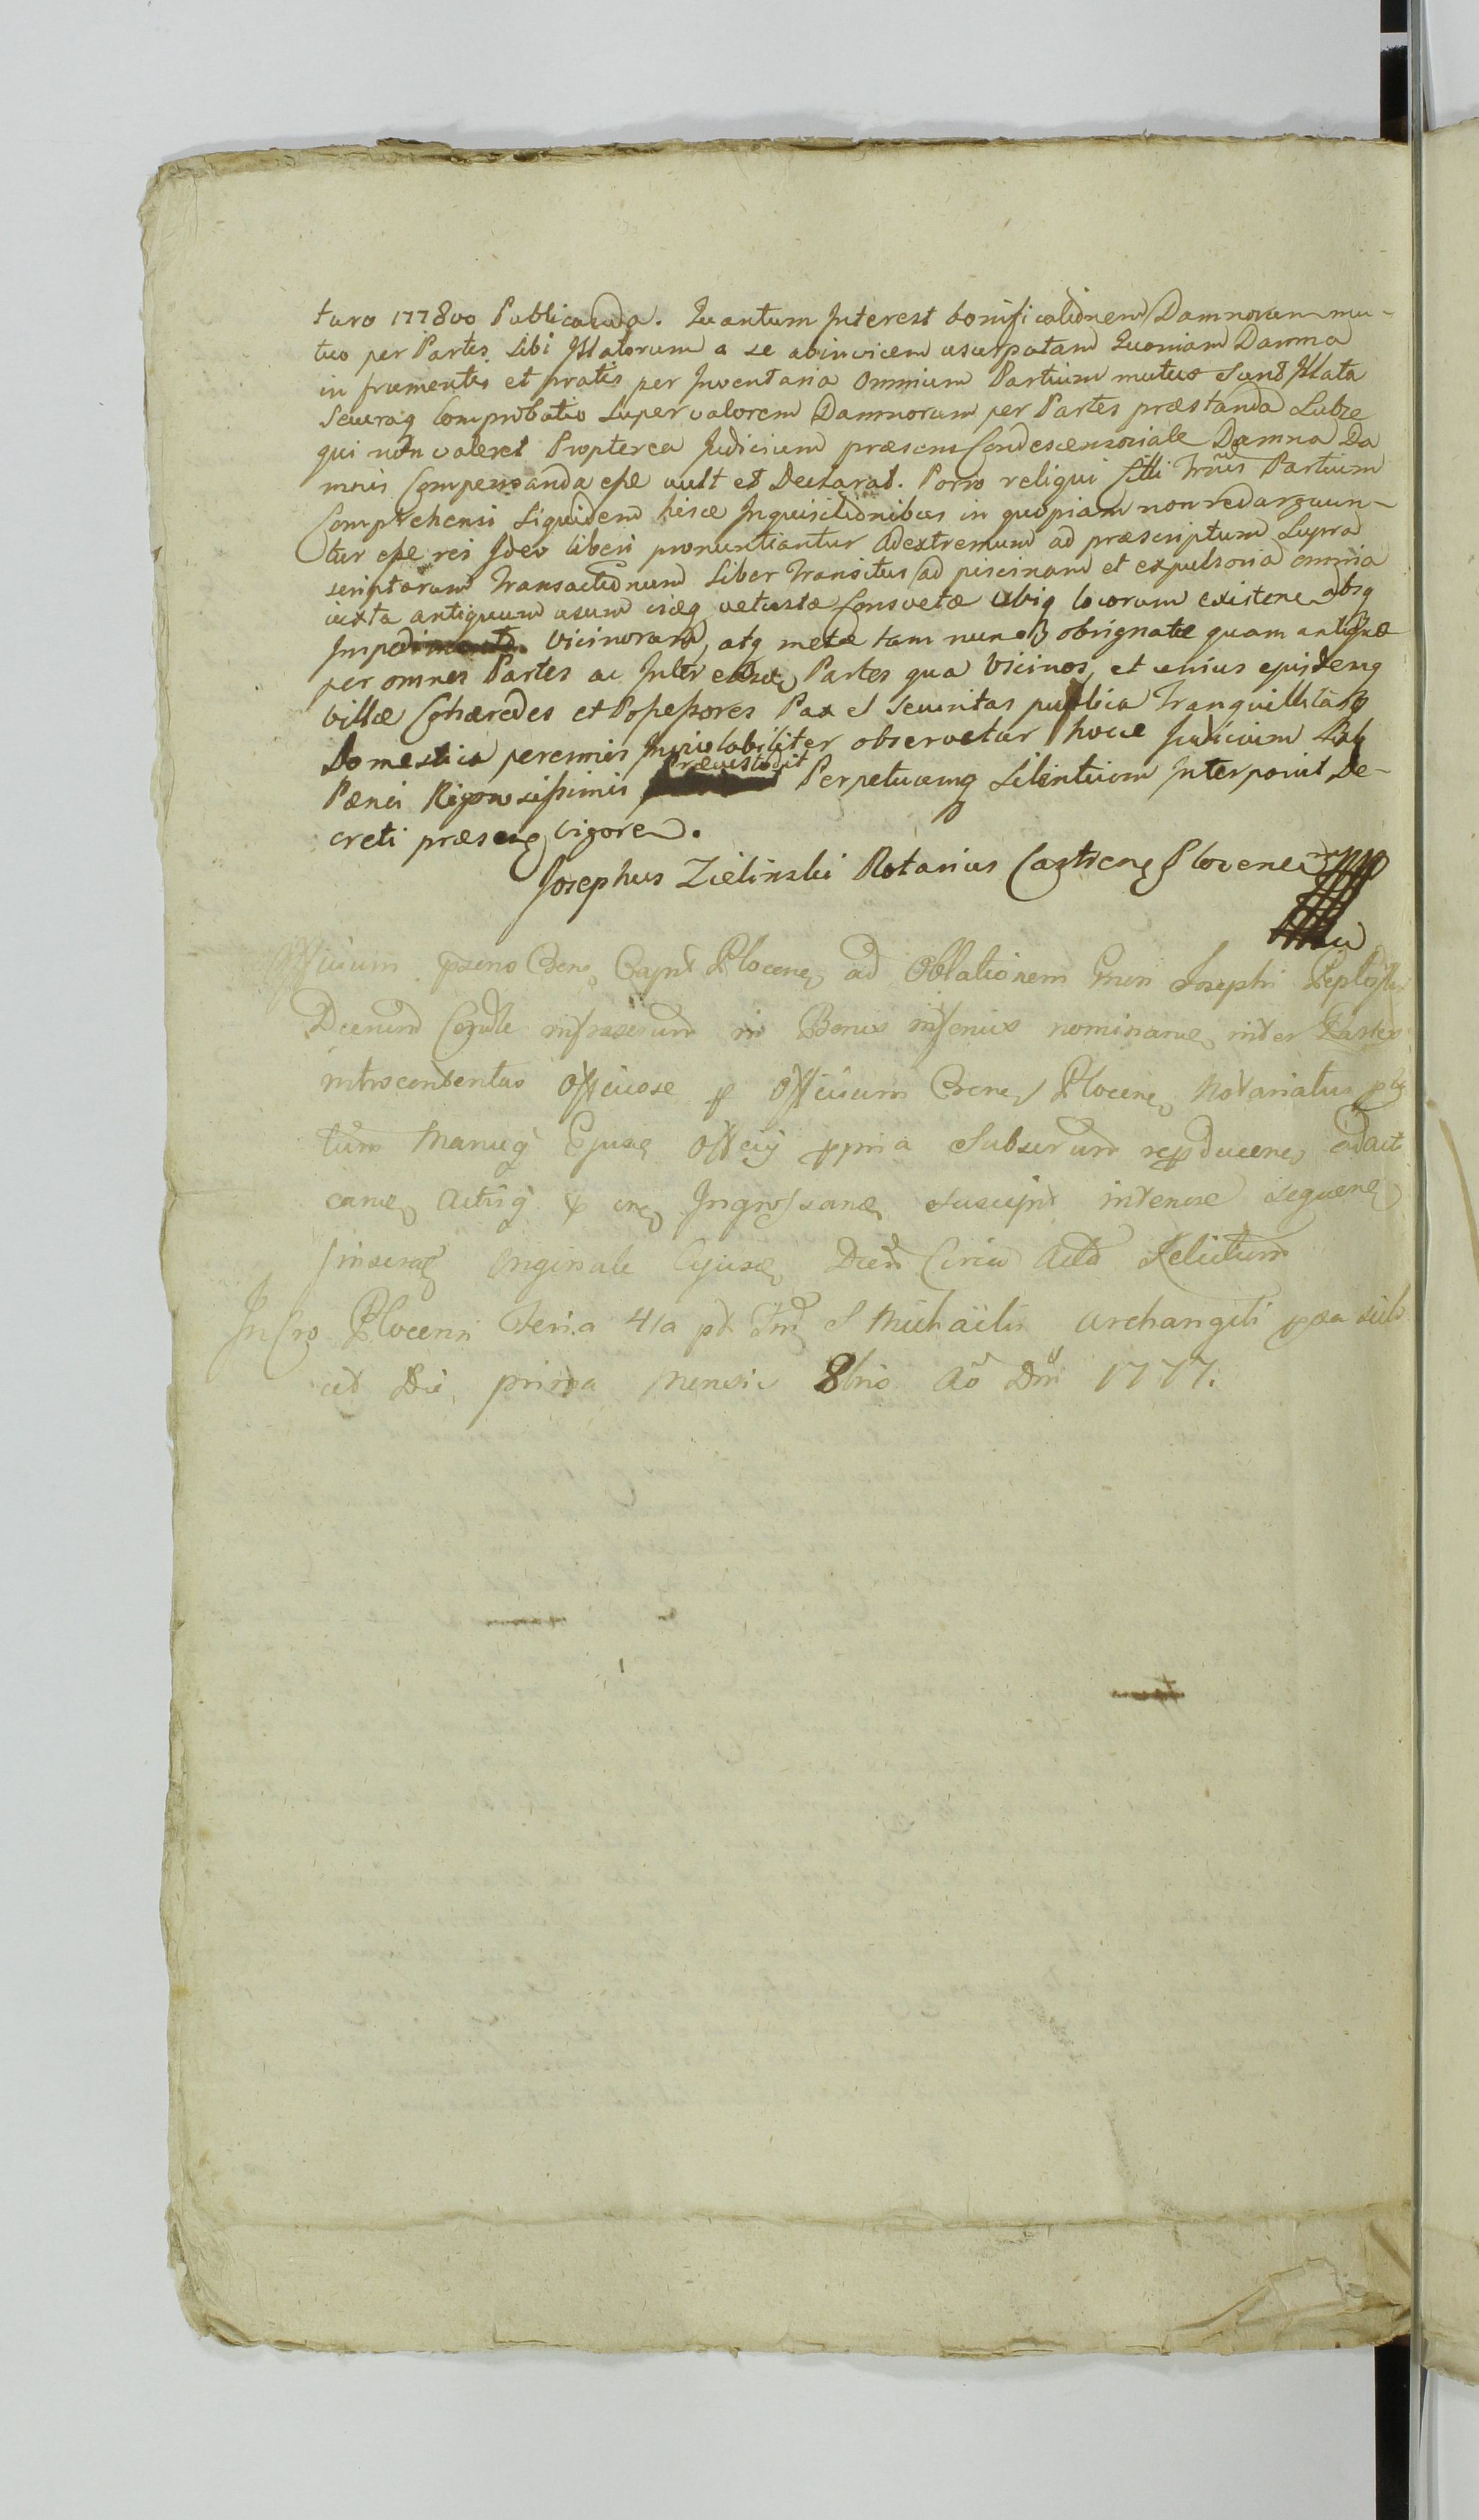 turo 1778vo Publicanda. Quantum Interest bonificationem Damnorum mu-
tuo per Partes sibi Illatorum a se abinvicem usurpatam Quoniam Damna
in frumentis et pratis per Inventaria omnium Partium mutuo sunt Illata
Securaq Comprobatio super valorem Damnorum per Partes præstanda Subse
qui non valeret Propterea Judicium præsens Condescensoriale Damna Da
mnis Compensanda esse vult et Declarat. Porro religui Citti Partium
Comprehensi Siquidem hisce Inquisitionibus in quopiam non redarguun-
tur esse rei Ideo liberi pronuntiantur Adextremum ad præscriptum Supra
scriptarum Transactionum Liber Transitus ad piscinam et expulsoria omnia
iuxta antiquum usum viæq vetustæ Consvetæ Ubiq locorum existen absq
Impedimento Vicinorum, atq metæ tam nunc obsignatæ quam antiquæ
per omnes Partes ac Inter easd Partes qua Vicinos, et unius ejusdemq
Villæ Cohæredes et Possessores Pax et Securitas publica Tranquillitasq
Domestica perennis Inviolabiliter observetur hocce Judicium Sub
Pænis Rigorosissimis Præcustodit Perpetuumq Silentium Interponit De-
creti præsens vigore.
Josephus Zielinski Notarius Castren Plocen
Officium præns Cren Capit Plocen ad Oblationem Josephi
Decretum in Bonis inferius nominan inter Partes
introcontentas officiose p Officium Cren Plocen Notariatus
tum Manuq Ejusd Officij ppria Subscrtum repducen
can Actisq Ingrossan suscipit intenore sequen
Originale Ejusd circa Acta Relictum
In Cro Plocensi Feria 4ta pt S Michäelis Archangeli pxa
cet Die prima Mensis 8bris Ao Dni 1777.